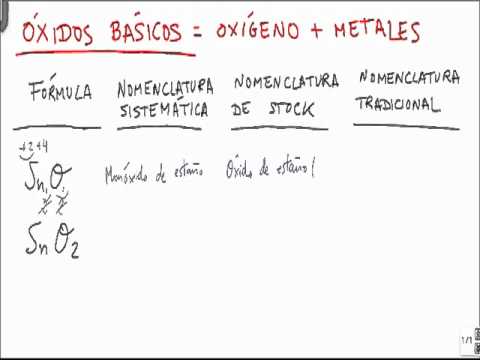 ÓXIDOS BÁSICOS = OXÍGENO + METALES
FÓRMULA
NOMENCLATURA SISTEMÁTICA
NOMENCLATURA DE STOCK
NOMENCLATURA TRADICIONAL
+2 +4
Sn₁ O₁ Monóxido de estaño Óxido de estaño (
2 2
Sn O₂
1/1